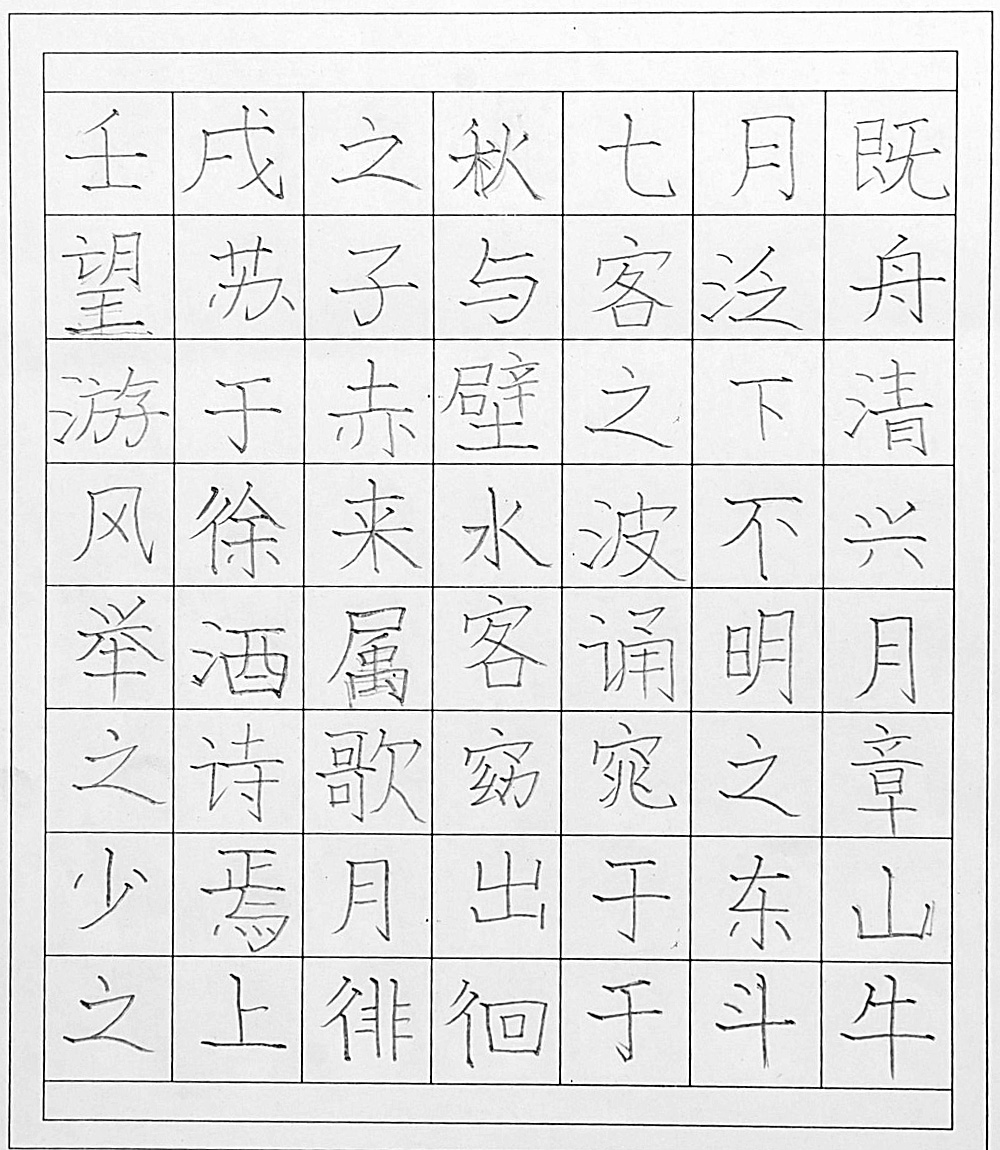 壬戌之秋七月既
望苏子与客泛舟
游于赤壁之下清
风徐来水波不兴
举酒属客诵明月
之诗歌窈窕之章
少焉月出于东山
之上徘徊于斗牛